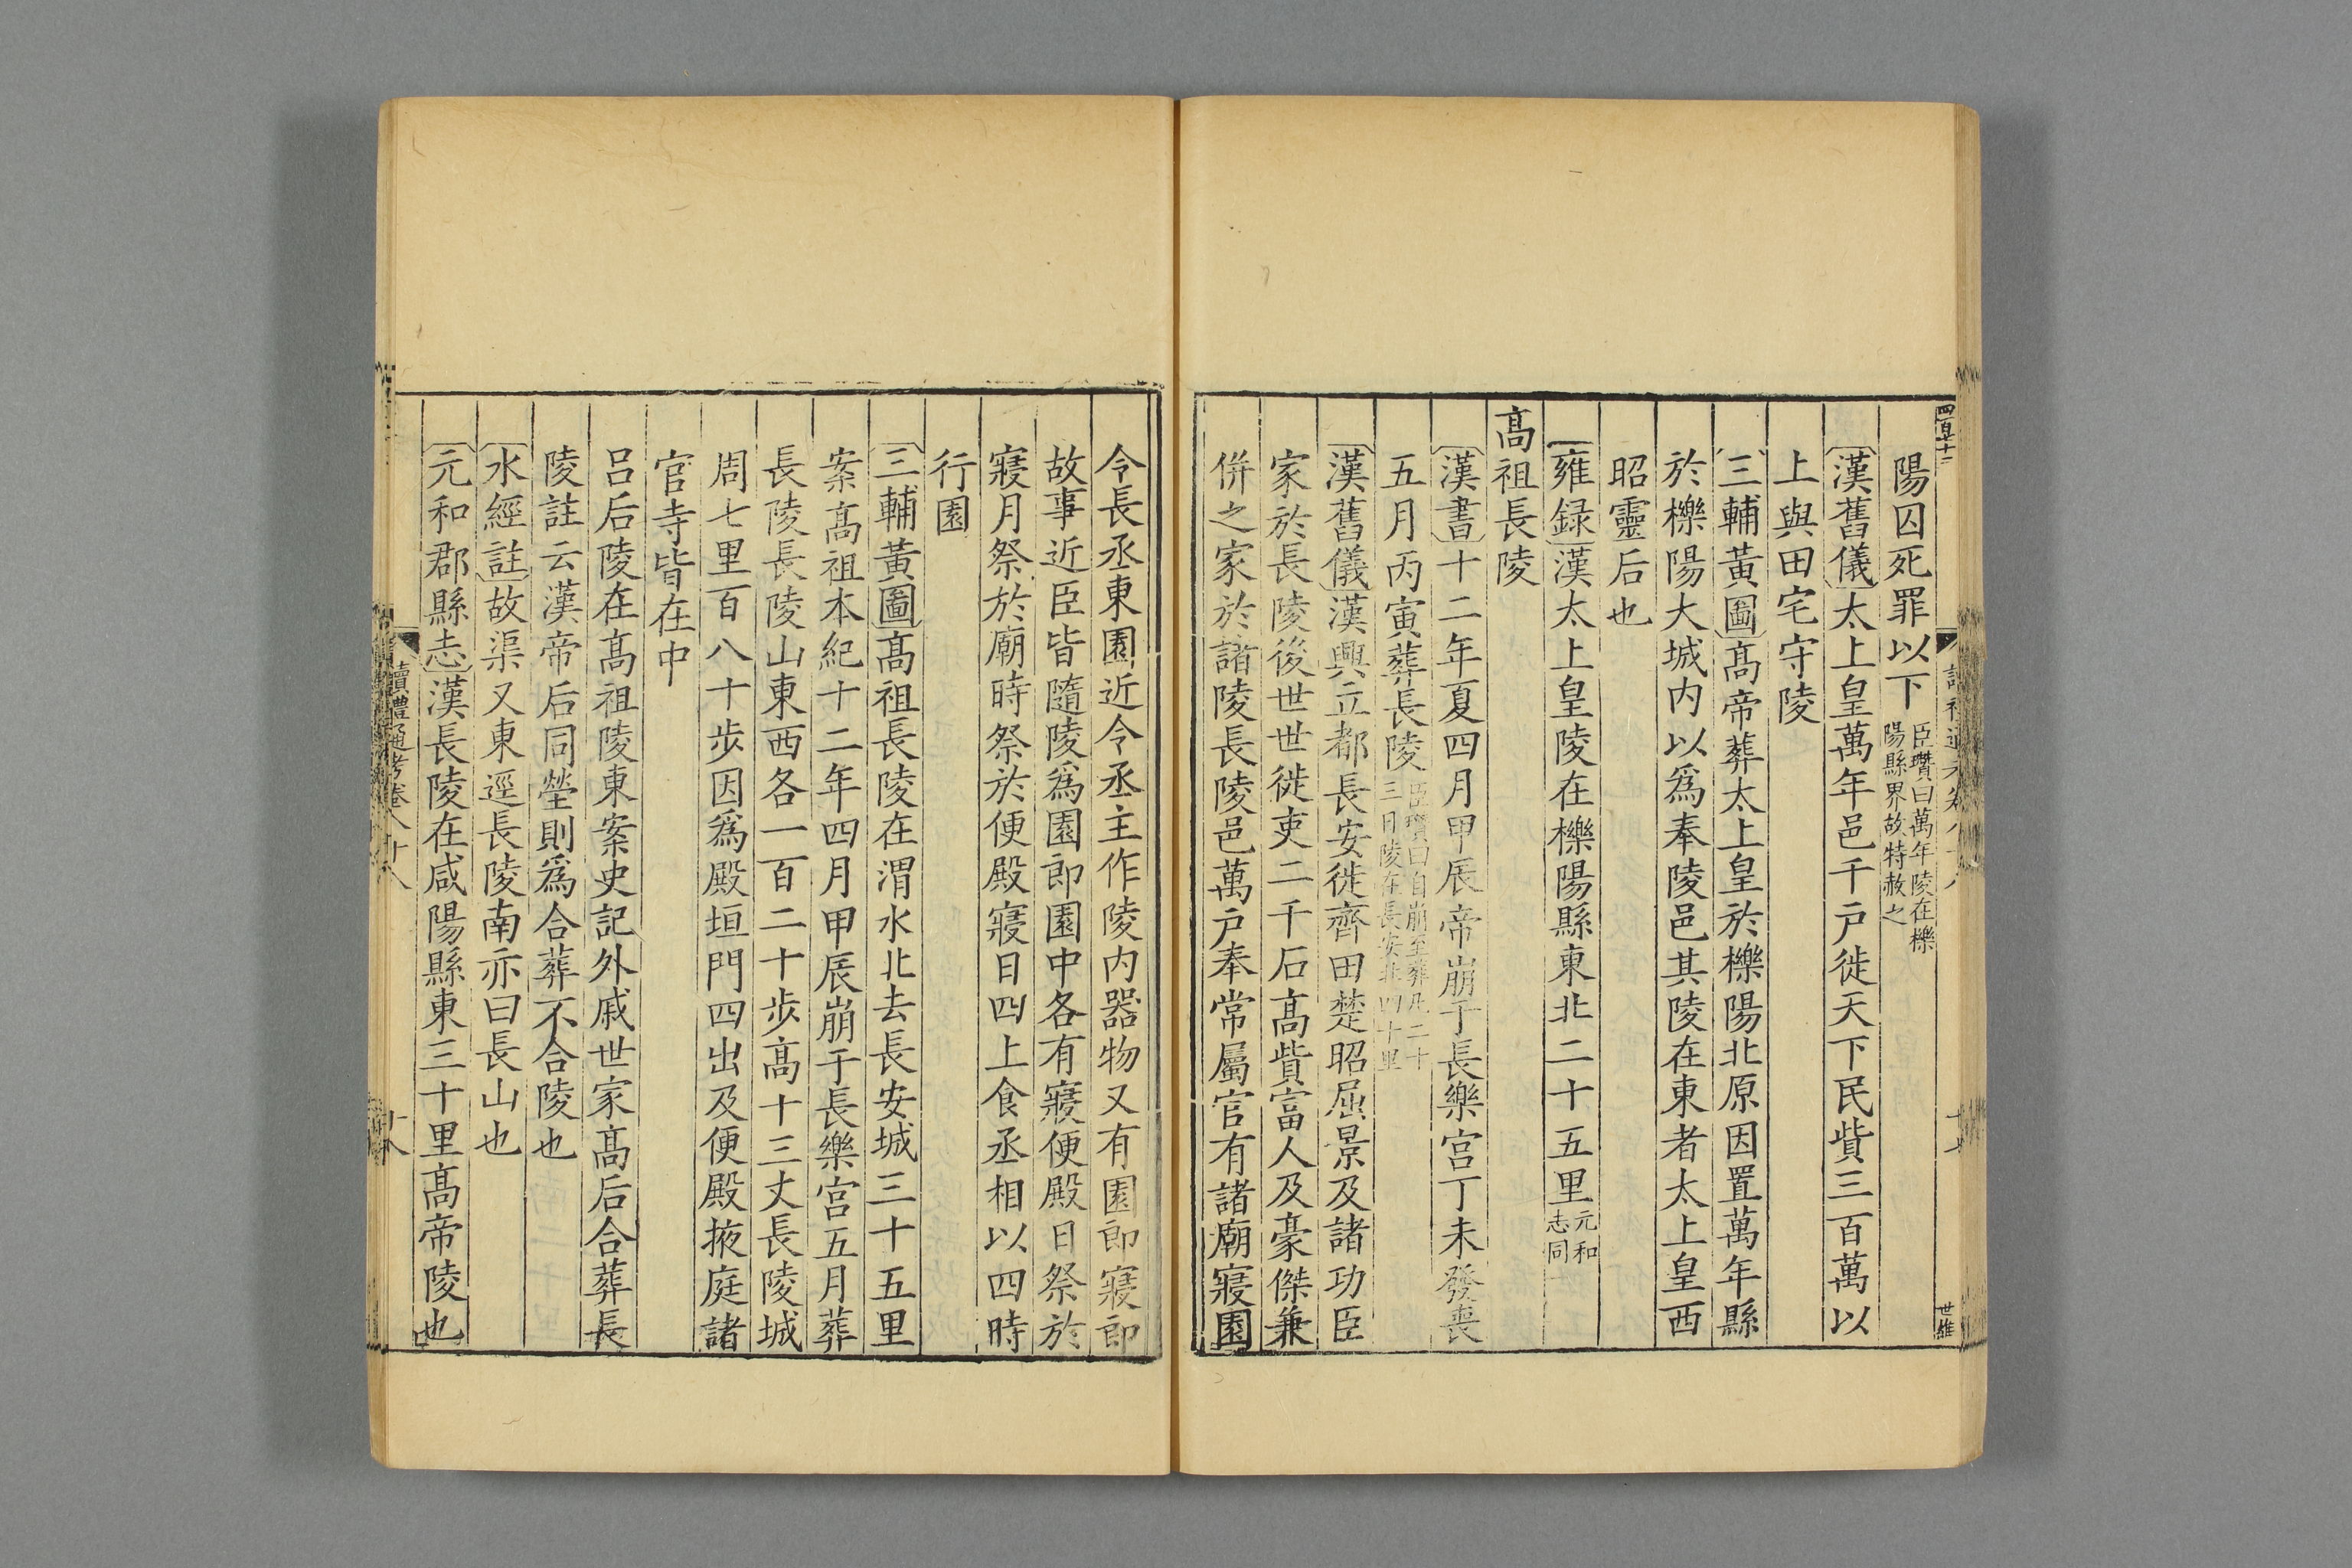 陽囚死罪以下臣瓚曰萬年陵在櫟陽縣界故特赦之
漢舊儀太上皇萬年邑千戸徙天下民貲三百萬以
上與田宅守陵
三輔黃圖髙帝葬太上皇於櫟陽北原因置萬年縣
於櫟陽大城内以爲奉陵邑其陵在東者太上皇西
昭靈后也
雍録漢太上皇陵在櫟陽縣東北二十五里元和志同
髙祖長陵
漢書十二年夏四月甲辰帝崩于長樂宫丁未發喪
五月丙寅葬長陵臣瓚曰自崩至葬凡二十三日陵在長安北四十里
漢舊儀漢興立都長安徙齊田楚昭屈景及諸功臣
家於長陵後世世徙吏二千石髙貲富人及豪傑兼
併之家於諸陵長陵邑萬戸奉常屬官有諸廟寢園
令長丞東園近令丞主作陵内器物又有園郎寢郎
故事近臣皆隨陵爲園郎園中各有寢便殿日祭於
寢月祭於廟時祭於便殿寢日四上食丞相以四時
行園
三輔黃圖髙祖長陵在渭水北去長安城三十五里
案髙祖本紀十二年四月甲辰崩于長樂宫五月葬
長陵長陵山東西各一百二十步髙十三丈長陵城
周七里百八十步因爲殿垣門四出及便殿掖庭諸
官寺皆在中
呂后陵在髙祖陵東案史記外戚世家髙后合葬長
陵註云漢帝后同塋則爲合葬不合陵也
水經註故渠又東逕長陵南亦曰長山也
元和郡縣志漢長陵在咸陽縣東三十里髙帝陵也
讀禮通考卷八十八
十八